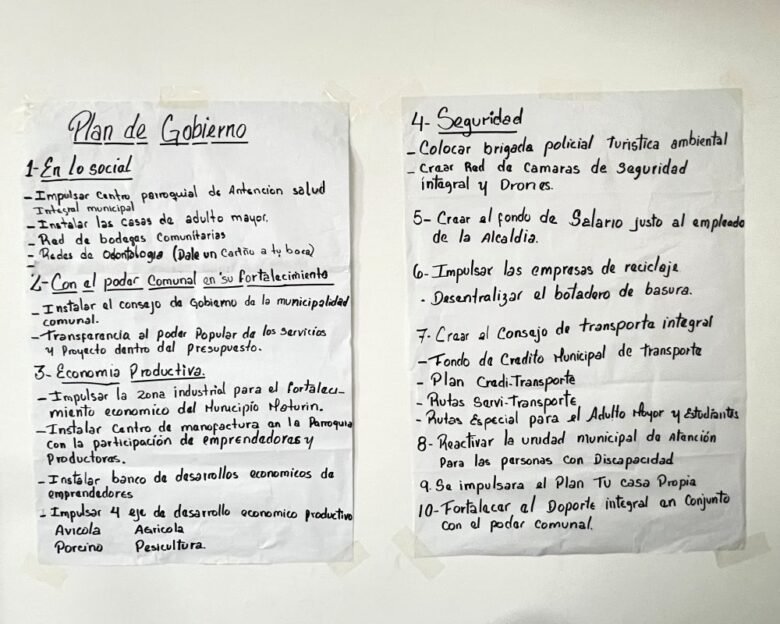 Plan de Gobierno
1- En lo social
- Impulsar Centro parroquial de Antención salud
Integral municipal
- Instalar las casas de adulto mayor.
- Red de bodegas Comunitarias
- Redes de Odontologia (Dale un Cariño a tu boca)
2- Con el poder Comunal en su fortalecimiento
- Instalar el consejo de Gobierno de la municipalidad
comunal.
- Transparencia al poder Popular de los servicios
y Proyecto dentro del Presupuesto.
3- Economia Productiva.
- Impulsar la zona industrial para el fortaleci-
miento economico del Municipio Maturin.
- Instalar Centro de manofactura en la Parroquia
con la participación de emprendedores y
Productores.
- Instalar banco de desarrollos economicos de
emprendedores
- Impulsar 4 eje de desarrollo economico productivo
Avicola Agricola
Porcino Pesicultura.
4- Seguridad
- Colocar brigada policial Turistica ambiental
- Crear Red de Camaras de Seguridad
integral y Drones.
5- Crear el fondo de Salario justo al empleado
de la Alcaldia.
6- Impulsar las empresas de reciclaje
. Desentralizar el botadero de basura.
7- Crear el Consejo de transporte integral
- Fondo de Credito Municipal de transporte
- Plan Credi-Transporte
- Rutas Servi-Transporte
- Rutas Especial para el Adulto Mayor y Estudiantes
8- Reactivar la unudad municipal de Atención
Para las personas con Discapacidad
9. Se impulsara el Plan Tu casa Propia
10- Fortalecer el Doporte integral en Conjunto
con el poder comunal.